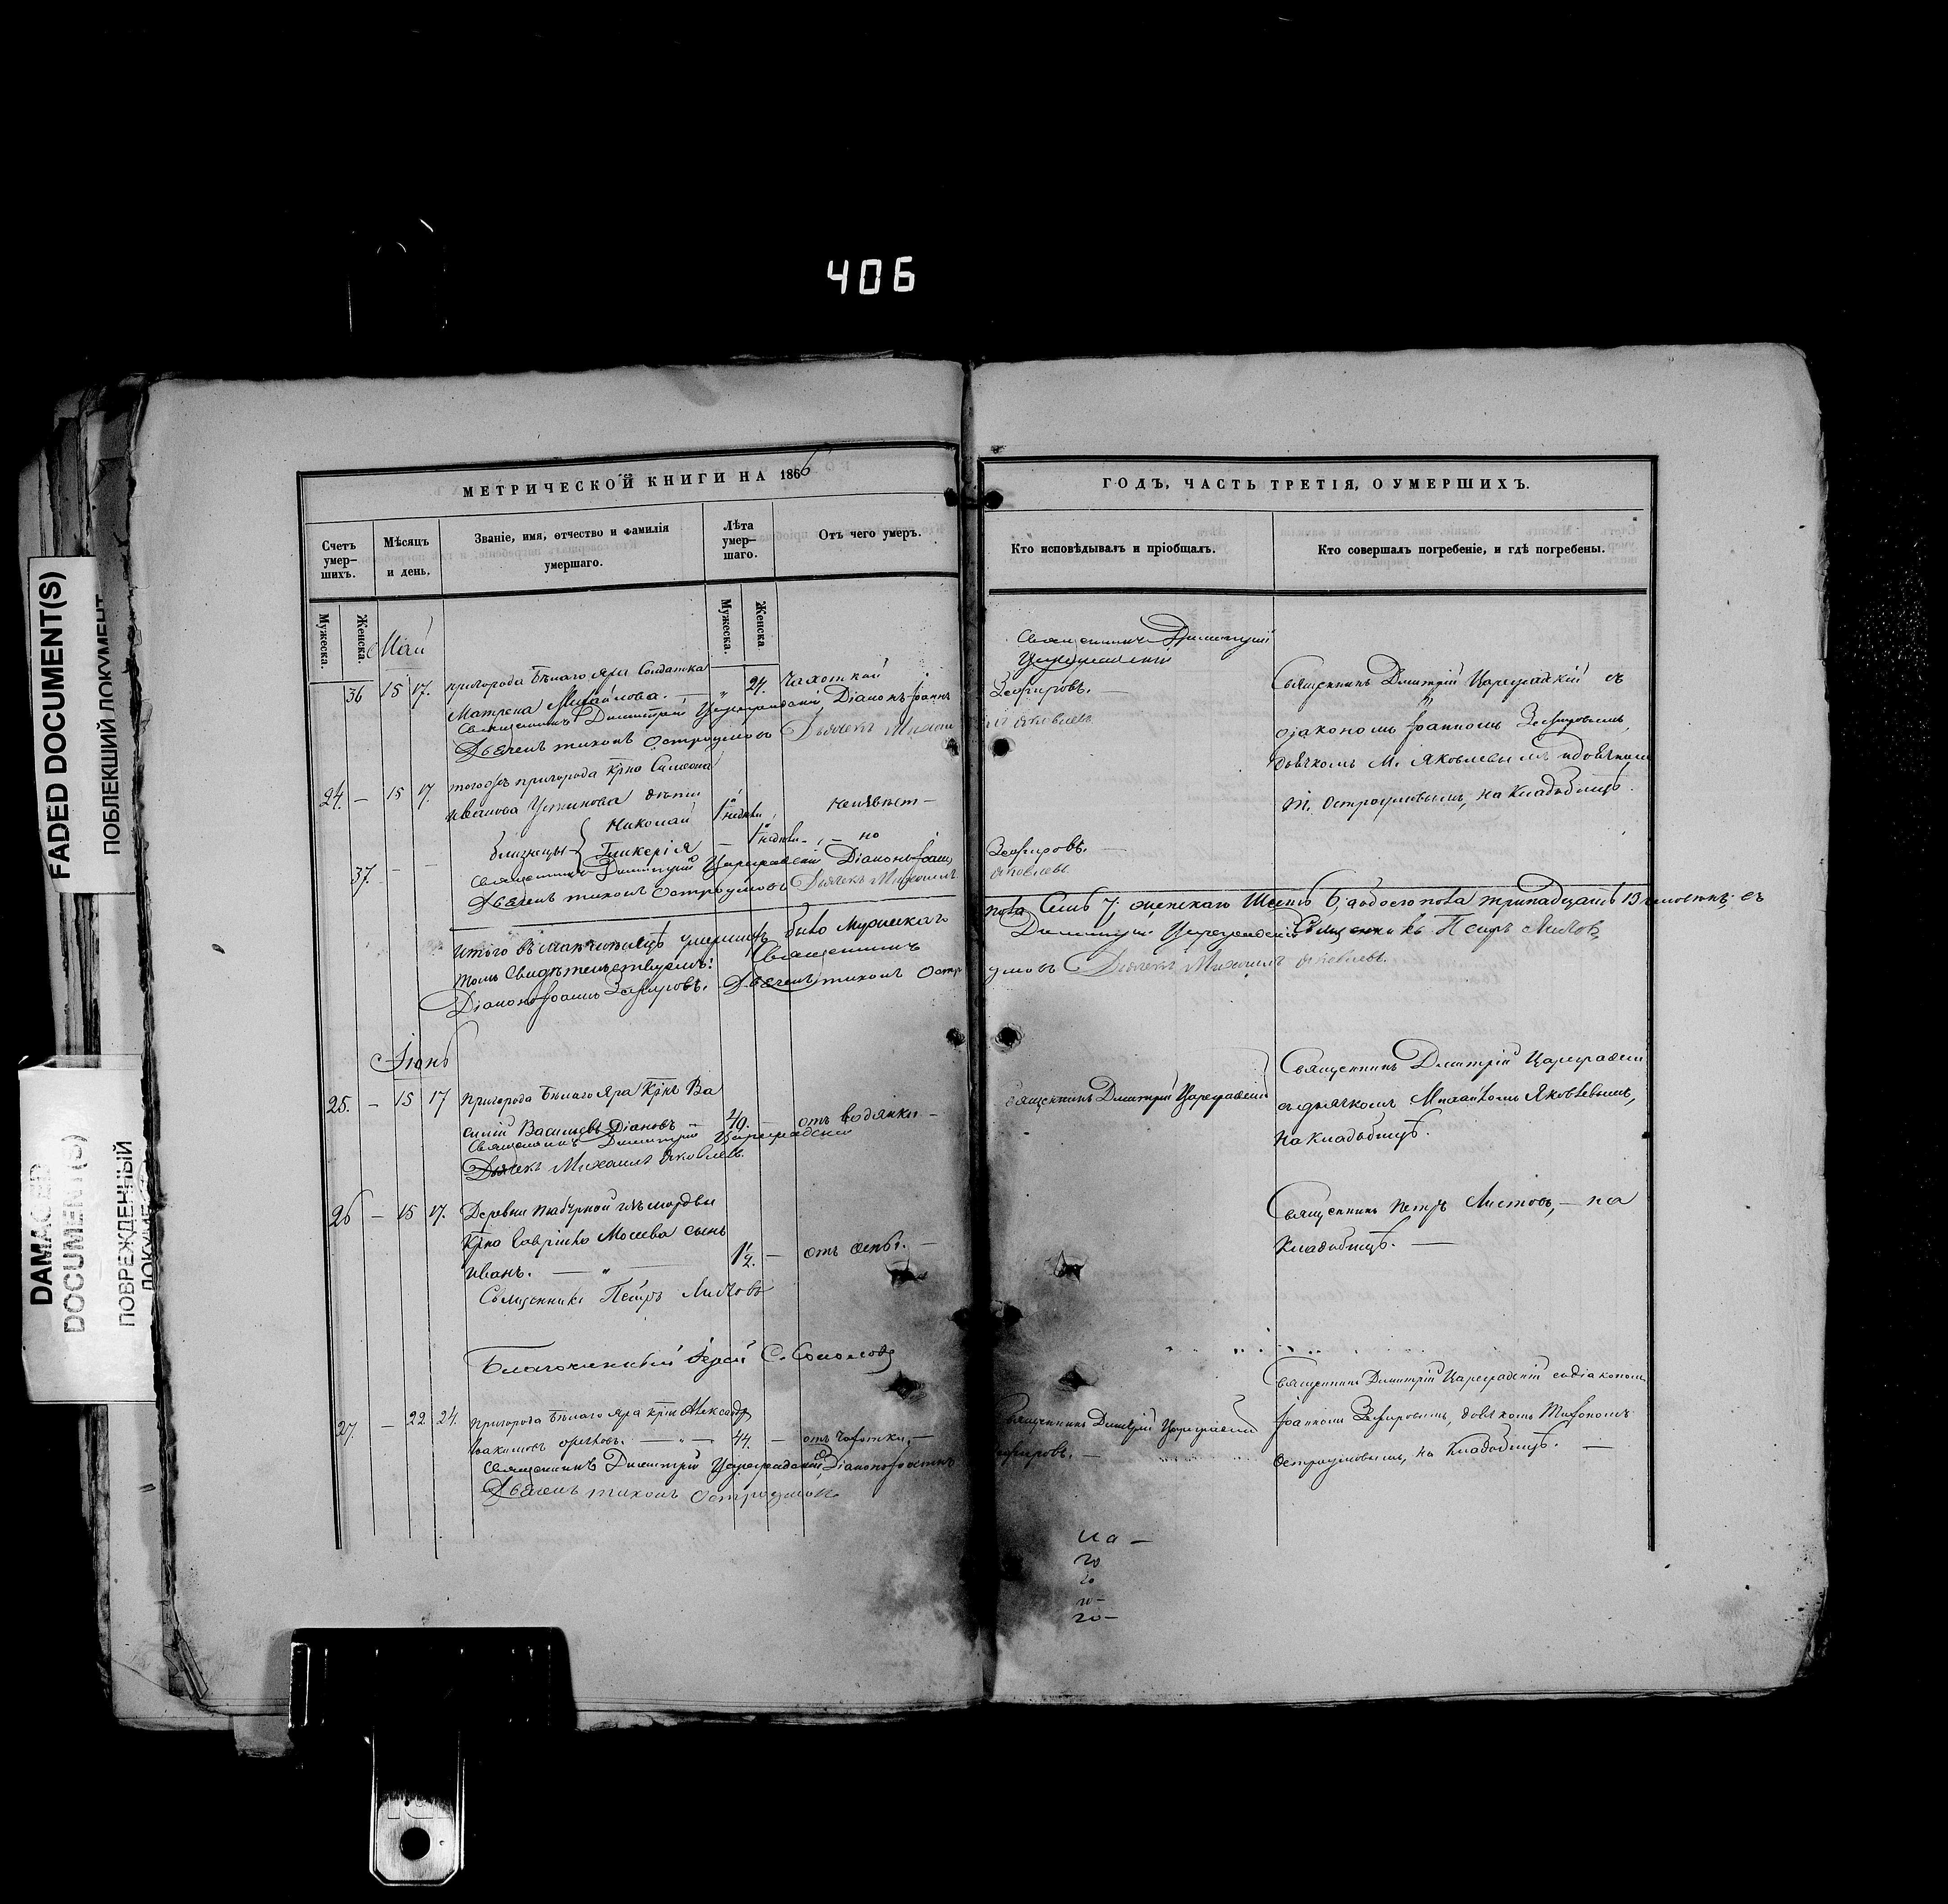 406
FADED DOCUMENT(S)
ПОБЛЕКШИЙ ДОКУМЕНТ
DAMAGED DOCUMENT(S)
ПОВРЕЖДЕННЫЙ ДОКУМЕ
МЕТРИЧЕСКОЙ КНИГИ НА 1866
Счетъ умер-шихъ.
Мѣсяцъ и день.
Званіе, имя, отчество и фамилія умершаго.
Лѣта умер-шаго.
Отъ чего умеръ.
Мужеска.
Женска.
Мужеска.
Женска
Май
36 15 17. пригорода Бѣлаго Яра Солдатка 24. Чахоткой
Матрена Михайлова. — „
Священникъ Димитрій Цареградскій Діаконъ Іоаннъ
Дьячекъ Тихонъ Остроумовъ Дьячекъ Михаил
24. — 15 17. тогожъ пригорода Крно Симеона
Иванова Устинова дѣти
близнецы Николай 1 недѣли неизвѣст—
37. — Гликерія — 1 недѣли — но
Священникъ Димитрій Цареградскій Діаконъ Іоан
Дьячекъ Тихонъ Остроумовъ Дьячекъ Михаилъ
Итого въ маѣ мѣсяцѣ умершихъ было Мужескаго
томъ Свидѣтельствуемъ: Священникъ
Діаконъ Іоаннъ Зефировъ. Дьячекъ Тихонъ Остр
Іюнь
25. — 15 17 Пригорода Бѣлаго Яра Крнъ Ва
силій Васильевъ Діановъ — 49. — отъ водянки —
Священникъ Димитрій Цареградскій
Дьячекъ Михаилъ Яковлевъ
26 — 15 17. Деревни изъ мордвы
Крно Гаврилы Мосеева сынъ
Иванъ. — „ — 1½. — отъ оспы. —
Священникъ Петръ Листовъ
Благочинный Іерей С.
27. — 22 24. Пригорода Бѣлаго Яра Крнъ Александр
44. — отъ чахотки. —
Священникъ Димитрій Цареградскій Діаконъ Іоаннъ
Дьячекъ Тихонъ Остроумовъ
ГОДЪ, ЧАСТЬ ТРЕТІЯ, О УМЕРШИХЪ.
Кто исповѣдывалъ и пріобщалъ.
Кто совершалъ погребеніе, и гдѣ погребены.
Священникъ Димитрій
Цареградскій
Зефировъ. —
Яковлевъ
Священникъ Дмитрій Цареградскій съ
діакономъ Іоанномъ Зефировымъ,
дьячкомъ М. Яковлевымъ и дьячкомъ
Т. Остроумовымъ, на Кладбищѣ.
Зефировъ. —
Яковлевъ
пола Семь 7, женскаго Шесть 6, а обоего пола тринадцать 13 человѣкъ въ
Димитрій Цареградскій Священникъ Петръ Листовъ,
умовъ Дьячекъ Михаилъ Яковлевъ.
Священникъ Дмитрій Цареградскій
Священникъ Дмитрій Цареградскій
съ дьячкомъ Михайломъ Яковлевымъ,
на Кладбищѣ.
Священникъ Петръ Листовъ, — на
Кладбищѣ. —
Священникъ Дмитрій Цареградскій
ефировъ. —
Священникъ Дмитрій Цареградскій съ діакономъ
Іоанномъ Зефировымъ, дьячкомъ Тихономъ
Остроумовымъ, на Кладбищѣ. —
20
20
20-
20-